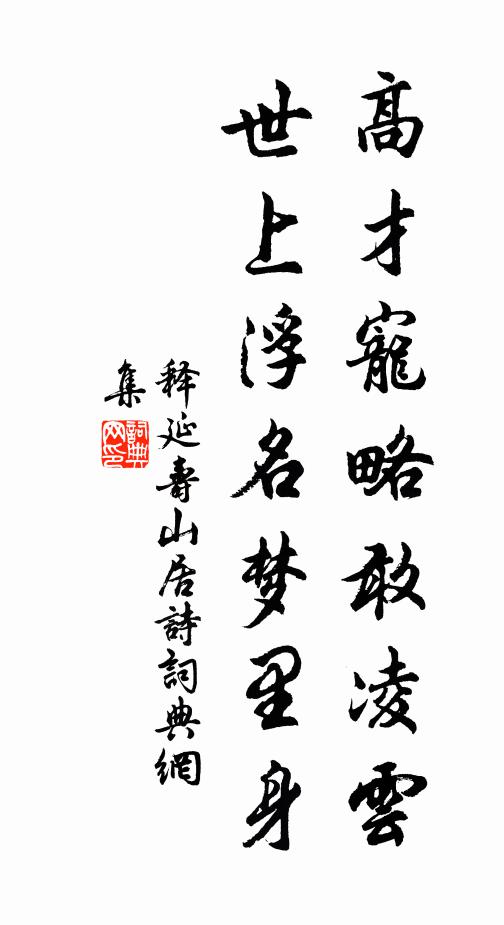 高才寵略敢凌雲
世上浮名梦里身
释延壽山居詩詞典網
集
詞典网印